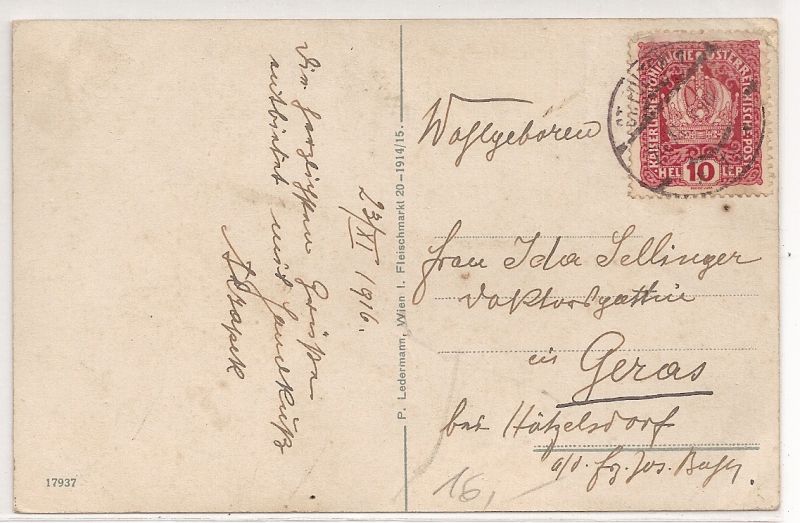 Die herzlichsten Grüße
entbietet mit Handkuß
23/XI 1916.
P. Ledermann, Wien I. Fleischmarkt 20-1914/15.
17937
KAISERLICHE KÖNIGLICHE ÖSTERREICHISCHE POST
HELLER
10
Wohlgeboren
Frau Ida Sellinger
Doktorsgattin
in Geras
bei Hötzelsdorf
a/d. Fz. Jos. Bahn
16,-